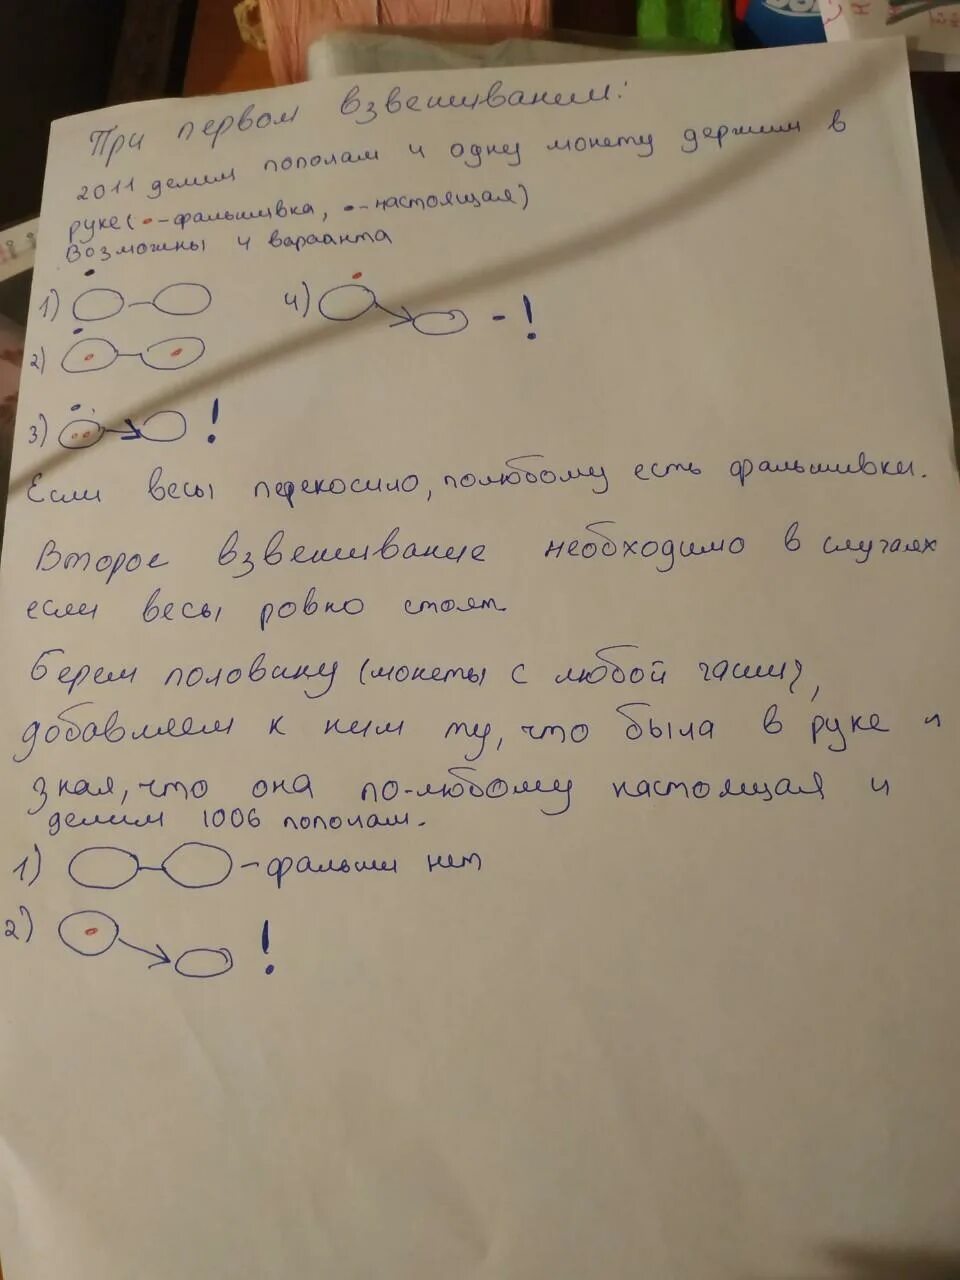 При первом взвешивании:
2011 делим пополам и одну монету держим в
руке (•-фальшивка, •-настоящая)
Возможны 4 варианта
1)
4) - !
2)
3) !
Если весы перекосило, полюбому есть фальшивки.
Второе взвешивание необходимо в случаях
если весы ровно стоят.
Берем половину (монеты с любой чаши),
добавляем к ним ту, что была в руке и
зная, что она по-любому настоящая и
делим 1006 пополам.
1) - фальши нет
2) !